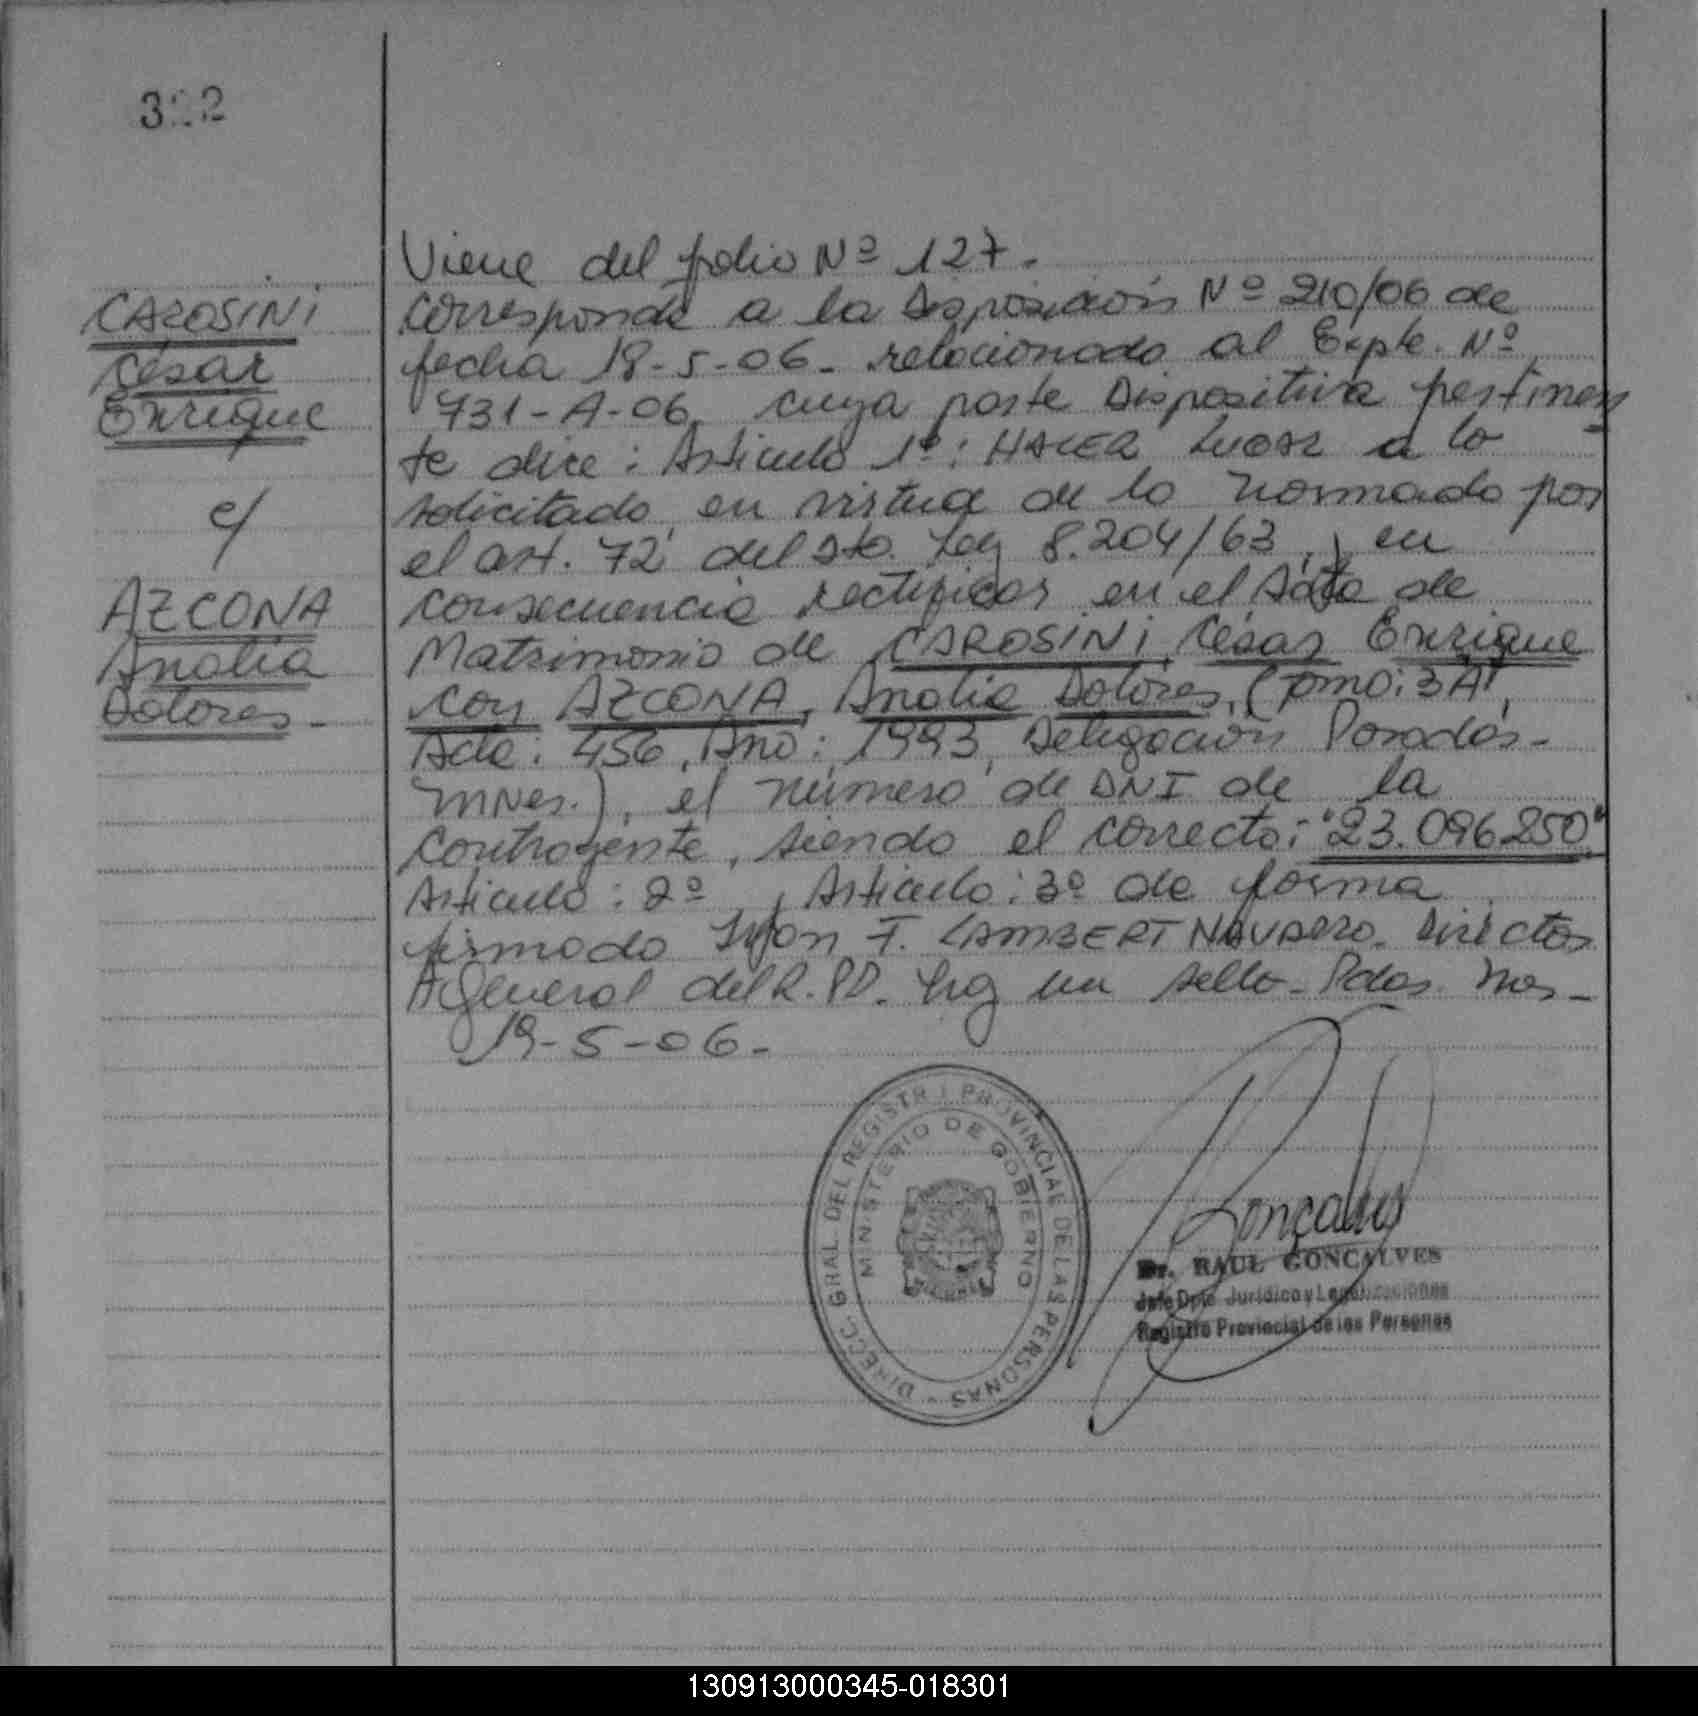 322
CAROSINI
César
Enrique
c/
AZCONA
Analía
Dolores.-
Viene del folio Nº 127.
Corresponde a la Disposición Nº 210/06 de
fecha 18-5-06- relacionado al Expte. Nº
731-A-06, cuya parte Dispositiva pertinen
te dice: Artículo 1º: HACER LUGAR a lo
solicitado, en virtud de lo normado por
el art. 72 del Dto. Ley 8.204/63, y en
consecuencia rectificar en el Acta de
Matrimonio de CAROSINI, César Enrique
con AZCONA, Analía Dolores, (Tomo: 3A,
Acta: 456, Año: 1993, Delegación Posadas-
Mnes.), el número de DNI de la
contrayente, siendo el correcto: "23.096.250"
Artículo: 2º, Artículo: 3º de forma
firmado F. LAMBERT NAVARRO. Director
General del R.PP. hay un sello- Pdas. Mnes-
19-5-06.-
DIRECC. GRAL. DEL REGISTR PROVINCIAL DE LAS PERSONAS -
MINISTERIO DE GOBIERNO
Gonçalves
Dr. RAUL GONCALVES
Jefe Dpto. Jurídico y Legalizaciones
Registro Provincial de las Personas
130913000345-018301